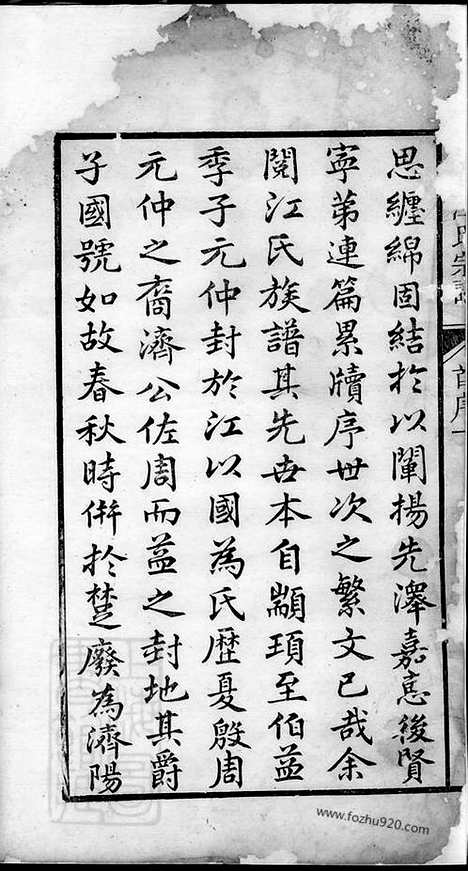 思纏綿固結於以闡揚先澤嘉惠後賢
寧苐連篇累牘序世次之繁文已哉余
閱江氏族譜其先世本自顓頊至伯益
季子元仲封於江以國為氏歷夏殷周
元仲之裔濟公佐周而益之封地其爵
子國號如故春秋時併於楚廢為濟陽
氏宗譜
首序一
www.fozhu920.com